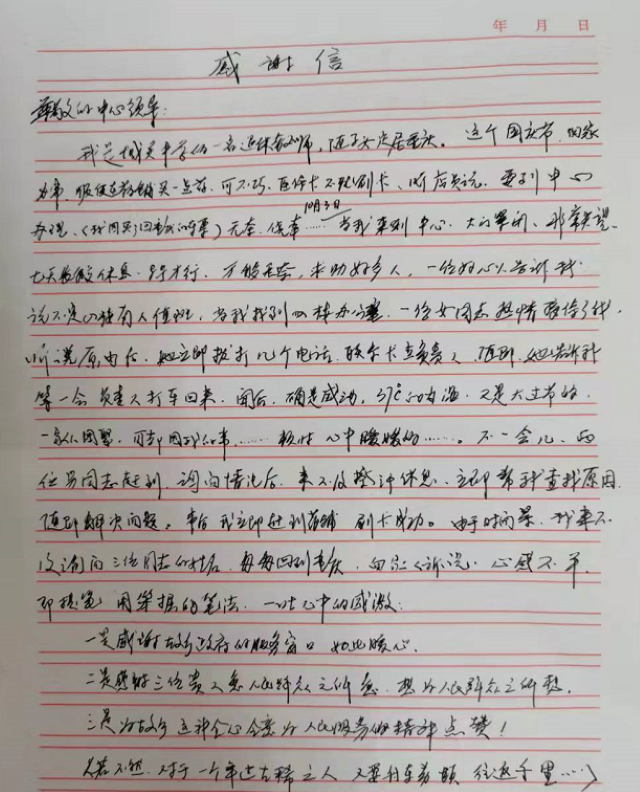 年 月 日
感谢信
尊敬的中心领导:
我是城关中学的一名退休教师,随子女定居重庆。这个国庆节,回家
办事,顺便去药铺买一点药,可不巧,医保卡不能刷卡、听店员说,要到中心
办理,(我同买了回重庆的车票)无奈,侥幸……10月3日当我来到中心,大门紧闭、非常失望。
七天长假休息,8号才行,万般无奈,求助好多人,一位好心人告诉我
说不定四楼有人值班,当我找到四楼办公室,一位女同志热情接待了我,
听清原由后,她立即拨打几个电话,联系卡点负责人,随即,她告诉我
等一会负责人打车回来,闻后,确是感动,37℃的高温,又是大过节的,
一家人团聚,可却因我的事,…… 顿时心中暖暖的……。不一会儿,两
位男同志赶到,询问情况后,来不及擦汗休息,立即帮我查找原因
随即解决问题。事后我立即赶到药铺 刷卡成功。由于时间紧,我来不
及询问三位同志的姓名,每每回到重庆,向家人诉说,心感不平,
即提笔 用笨拙的笔法,一吐心中的感激:
一是感谢故乡政府的服务窗口 如此暖心.
二是感谢三位贵人急人民群众之所急,想为人民群众之所想。
三是为故乡这种全心全意为人民服务的精神点赞!
(若不然,对于一个年近古稀之人 又要行车劳顿 往返千里……)